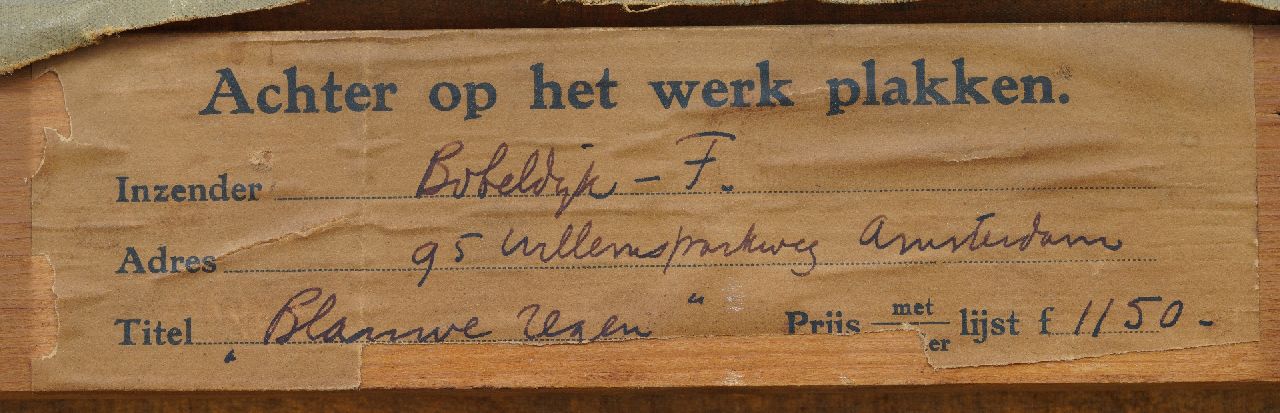 Achter op het werk plakken.
Inzender Bobeldijk – F.
Adres 95 Willemsparkweg Amsterdam
Titel „Blauwe regen“ Prijs met er lijst f 1150 -